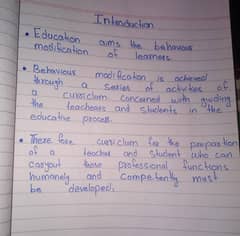 Introduction
• Education aims the behaviour
modification of learners.
• Behaviour modification is achieved
through a series of activities of
a curriculum concerned with guiding
the teachers and students in the
educative process.
• There fore curriculum for the
of a teacher and student who can
carryout those professional functions
humanely and competently must
be developed.